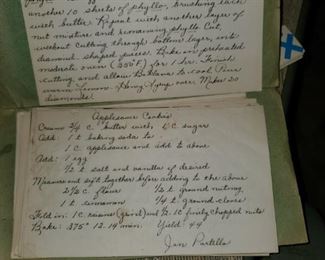 another 10 sheets of phyllo, brushing each
with butter. Repeat with another layer of
nut mixture and remaining phyllo. Cut,
without cutting through bottom layer, into
diamond-shaped pieces. Bake in preheated
moderate oven (350°F) for 1 hr. Finish
cutting, and allow Baklava to cool. Pour
warm Lemon-Honey Syrup over. Makes 30
diamonds.
Applesauce Cookies
Cream 3/4 c. butter with 1 c sugar
Add 1 t baking soda to
1 c applesauce and add to above
Add: 1 egg
1/2 t salt and vanilla if desired
Measure and sift together before adding to the above
2 1/2 c flour 1/2 t ground nutmeg
1 t cinnamon 1/4 t ground cloves
Fold in: 1 c. raisins (ground) and 1/2-1 c finely chopped nuts
Bake: 375° 12-14 min. Yield: 44
Jan